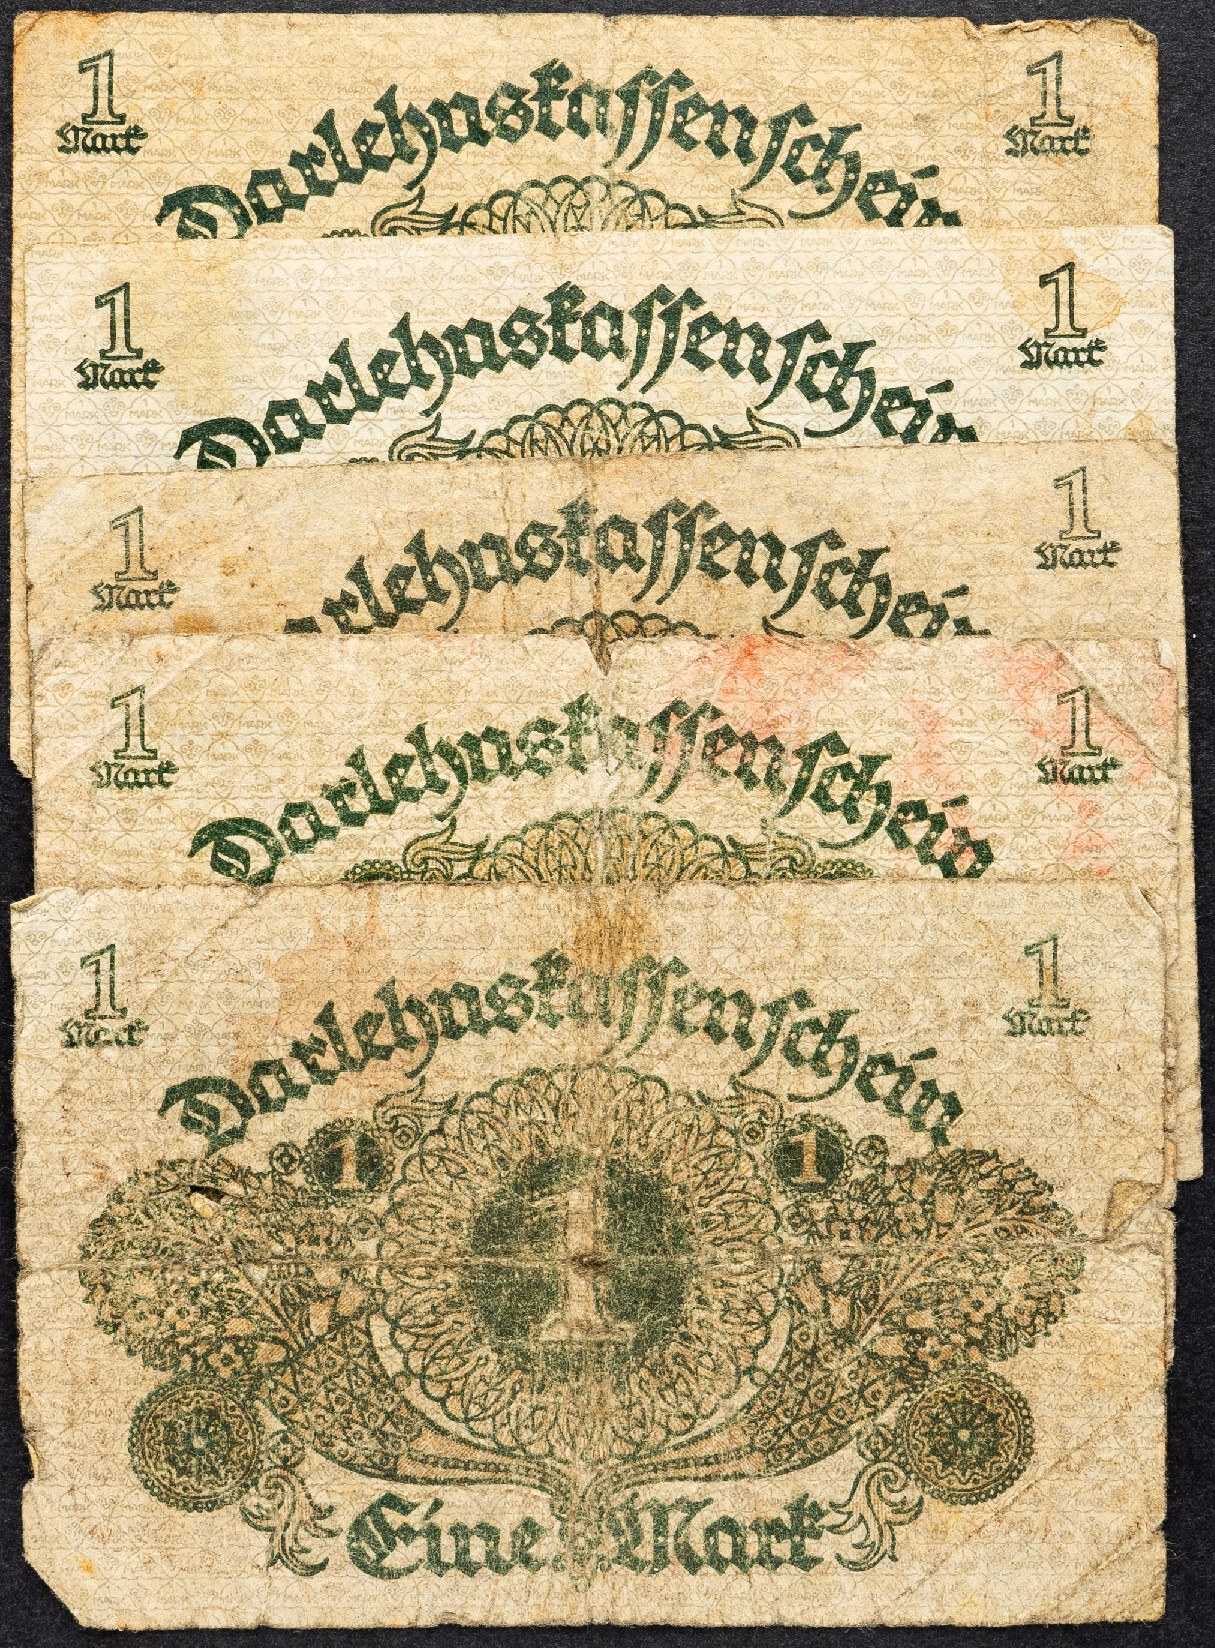 1 1
Mark Mark
Darlehnskassenschein
1 1
Mark Mark
Darlehnskassenschein
1 1
Mark Mark
arlehnskassenschein
1 1
Mark Mark
Darlehnskassenschein
1 1
Mark Mark
Darlehnskassenschein
1 1
1
Eine Mark